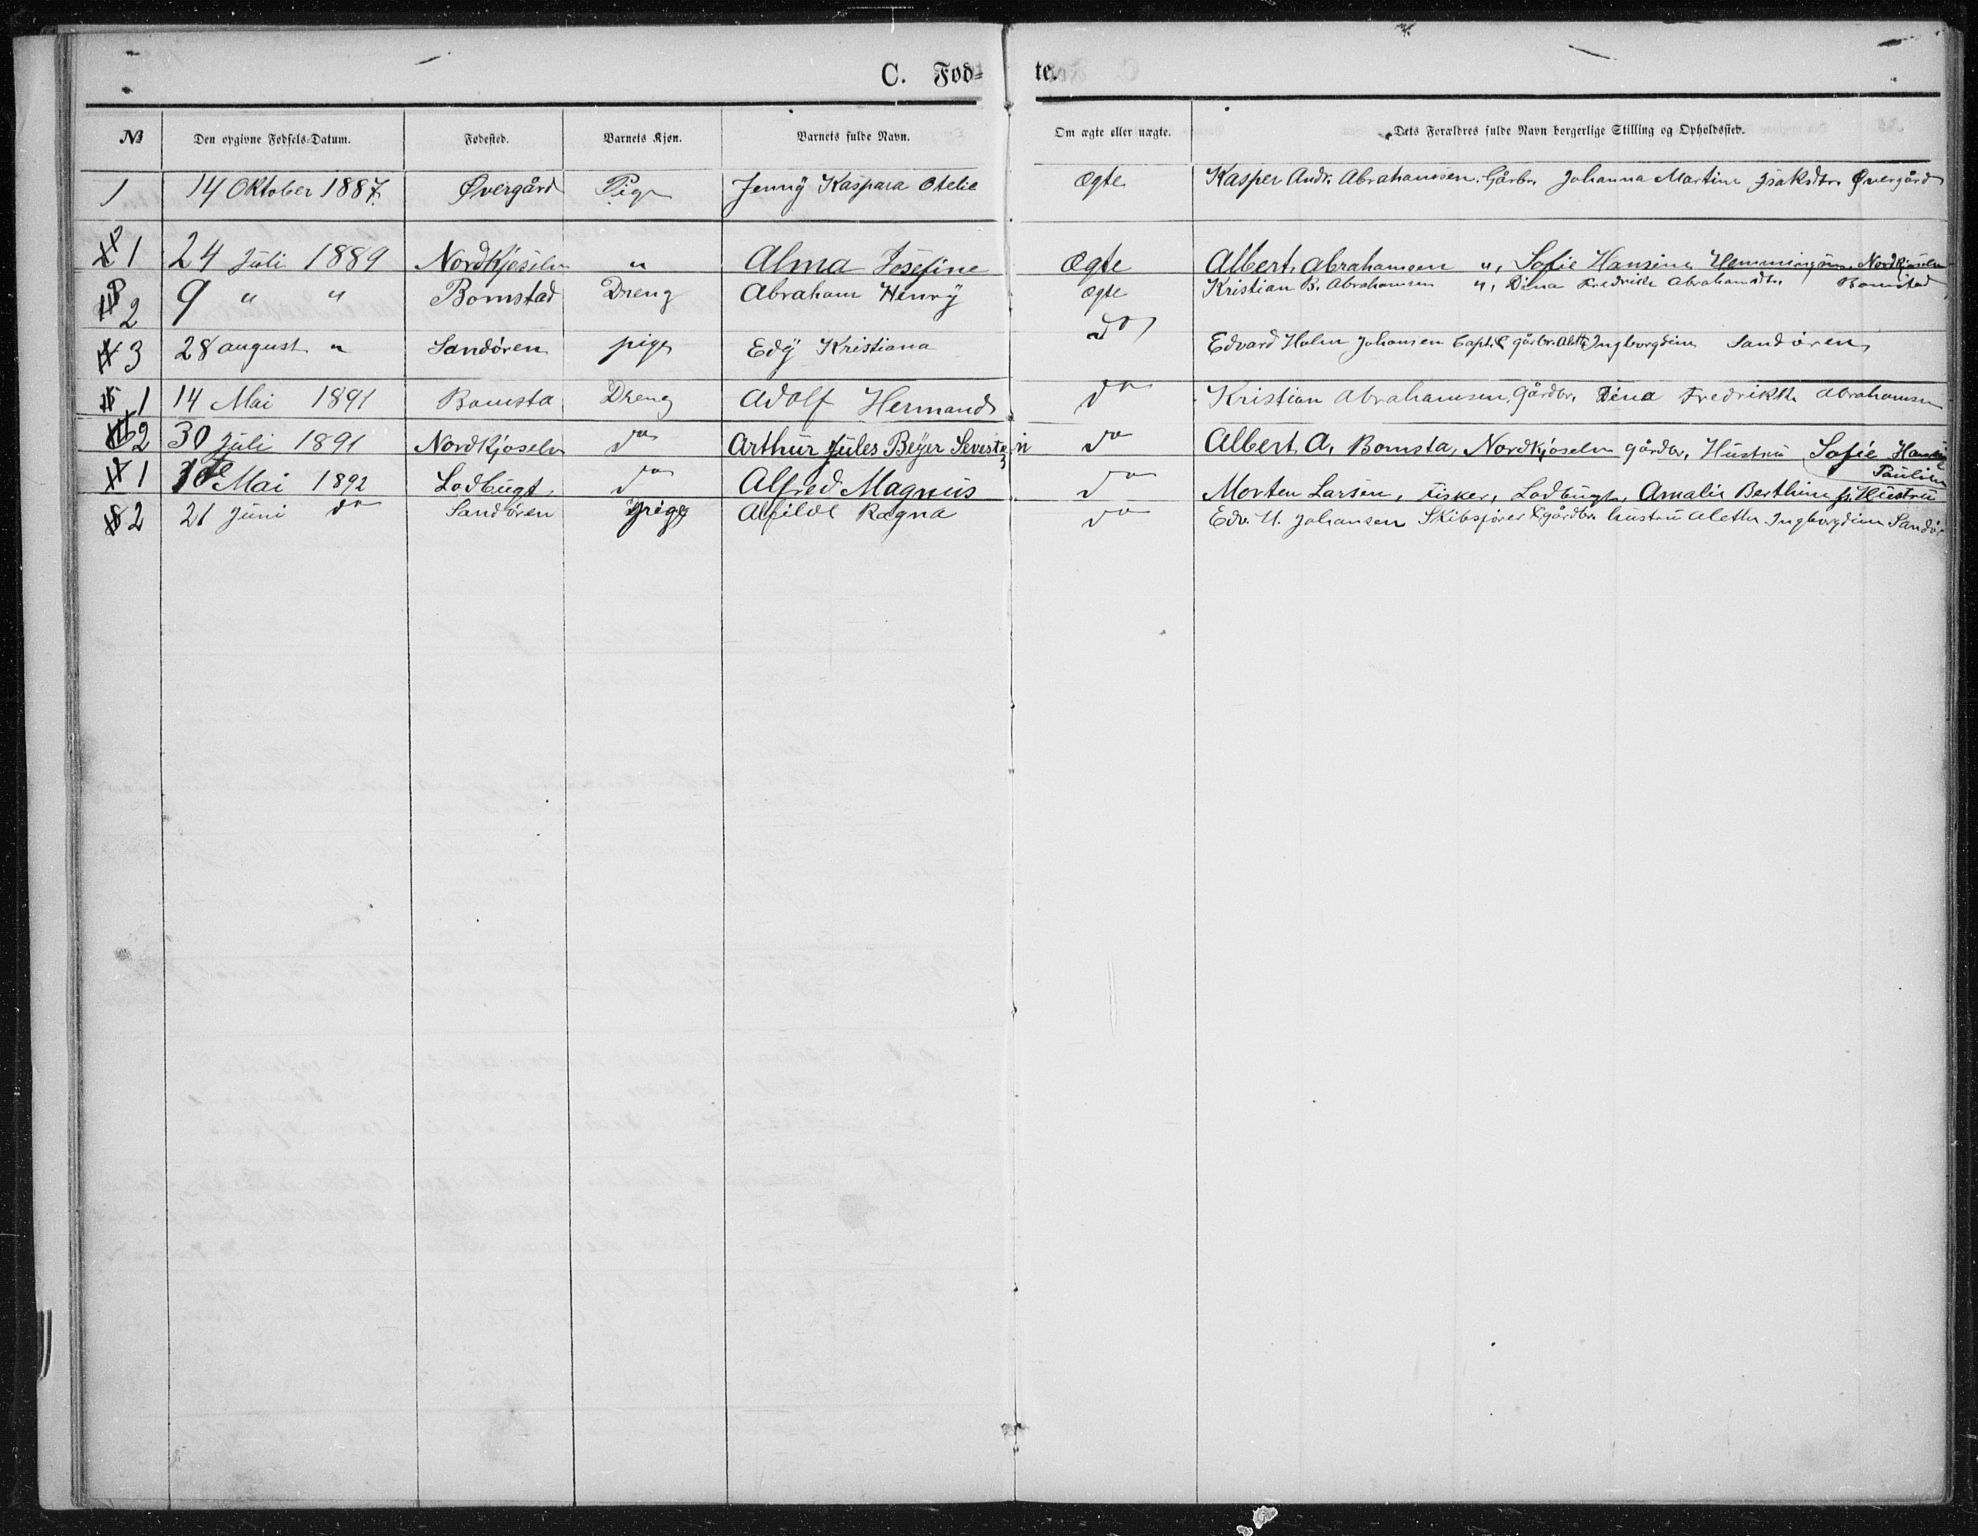 C. Fød- te.
№ Den opgivne Fødsels-Datum. Fødested. Barnets Kjøn. Barnets fulde Navn. Om ægte eller uægte. Dets Forældres fulde Navn borgerlige Stilling og Opholdssted.
1 14 Oktober 1887. Øvergård Pige Jenny Kaspara Otelie Ægte Kasper Andr. Abrahamsen. Gårbr. Johanna Martine Isaksdtr. Øvergård
1 24 Juli 1889 Nordkjoseln " Alma Josefine Ægte Albert Abrahamsen ", Sofie Hansine Nordkjoseln
2 9 " " Bomstad Dreng Abraham Henry Ægte Kristian B. Abrahamsen ", Dina Fredrikke Abrahamsdtr. Bomstad
3 28 august " Sandøren pige Edy Kristiana do Edvard Holm Johansen Capt. & gårbr. Ingborgdine Sandøren
1 14 Mai 1891 Bomsta Dreng Adolf Hermand do Kristian Abrahamsen, Gårdbr. Dina Fredrikke Abrahamsen
2 30 Juli 1891 Nordkjoseln do Arthur Jules Beyer Severin do Albert A. Bomsta, Nordkjoseln gårdbr. Hustru Sofie
Paulin
1 Mai 1892 Lodbugt do Alfred Magnus do Morten Larsen, Fisker, Lodbugt, Amalie Berthine Hustru
2 21 Juni do Sandøren pige Ragna do Edv. H. Johansen Skibsfører & gårdbr. hustru Aletta Ingborgdine